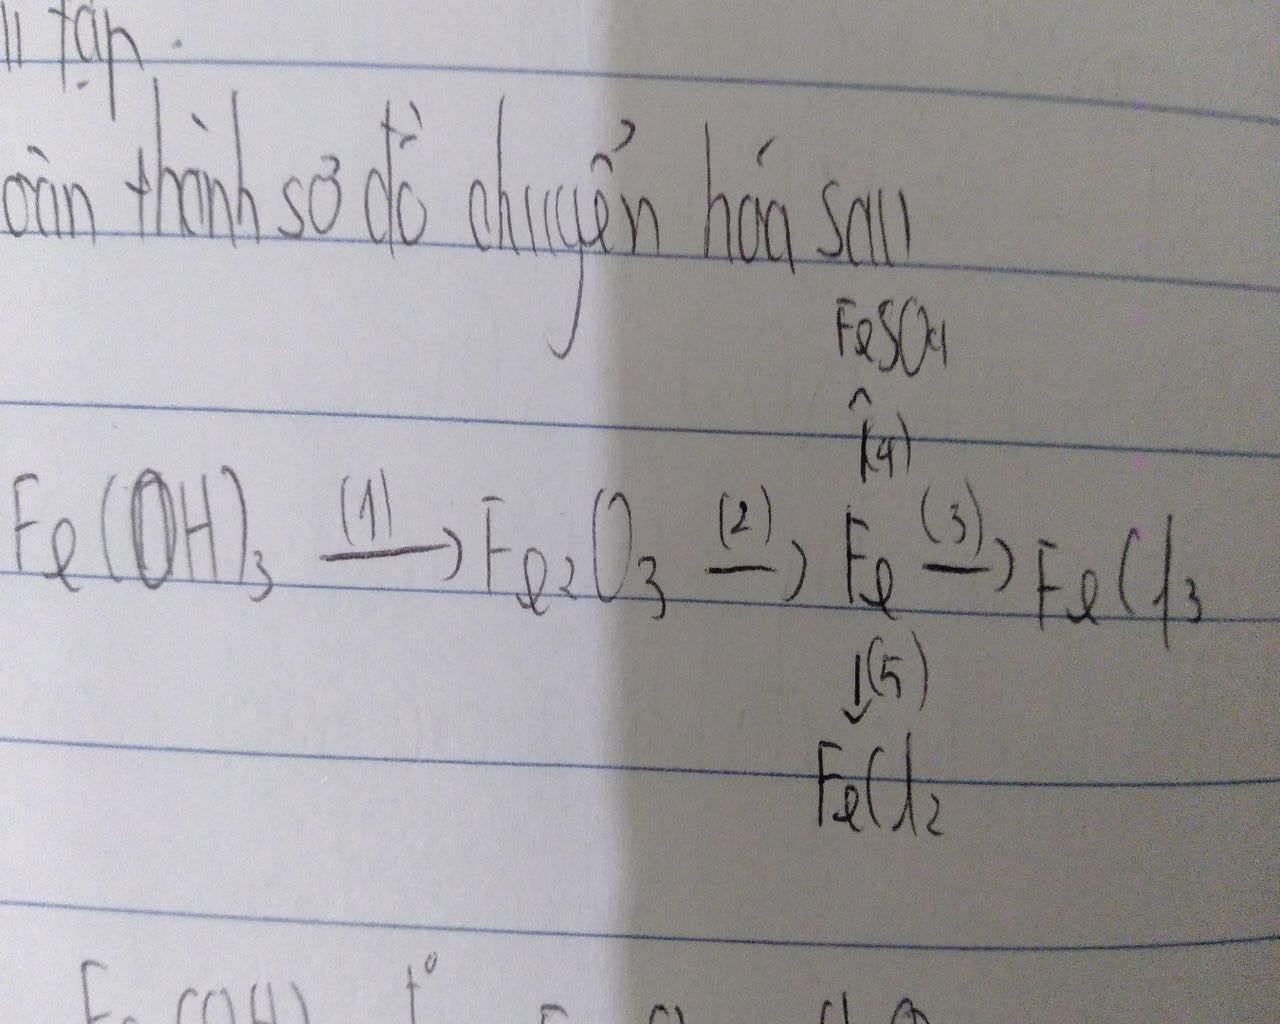 tập.
oàn thành sơ đồ chuyển hóa sau
FeSO4
(4)
Fe(OH)3 (1)→ Fe2O3 (2)→ Fe (3)→ FeCl3
↓(5)
FeCl2
Fe(OH) t°